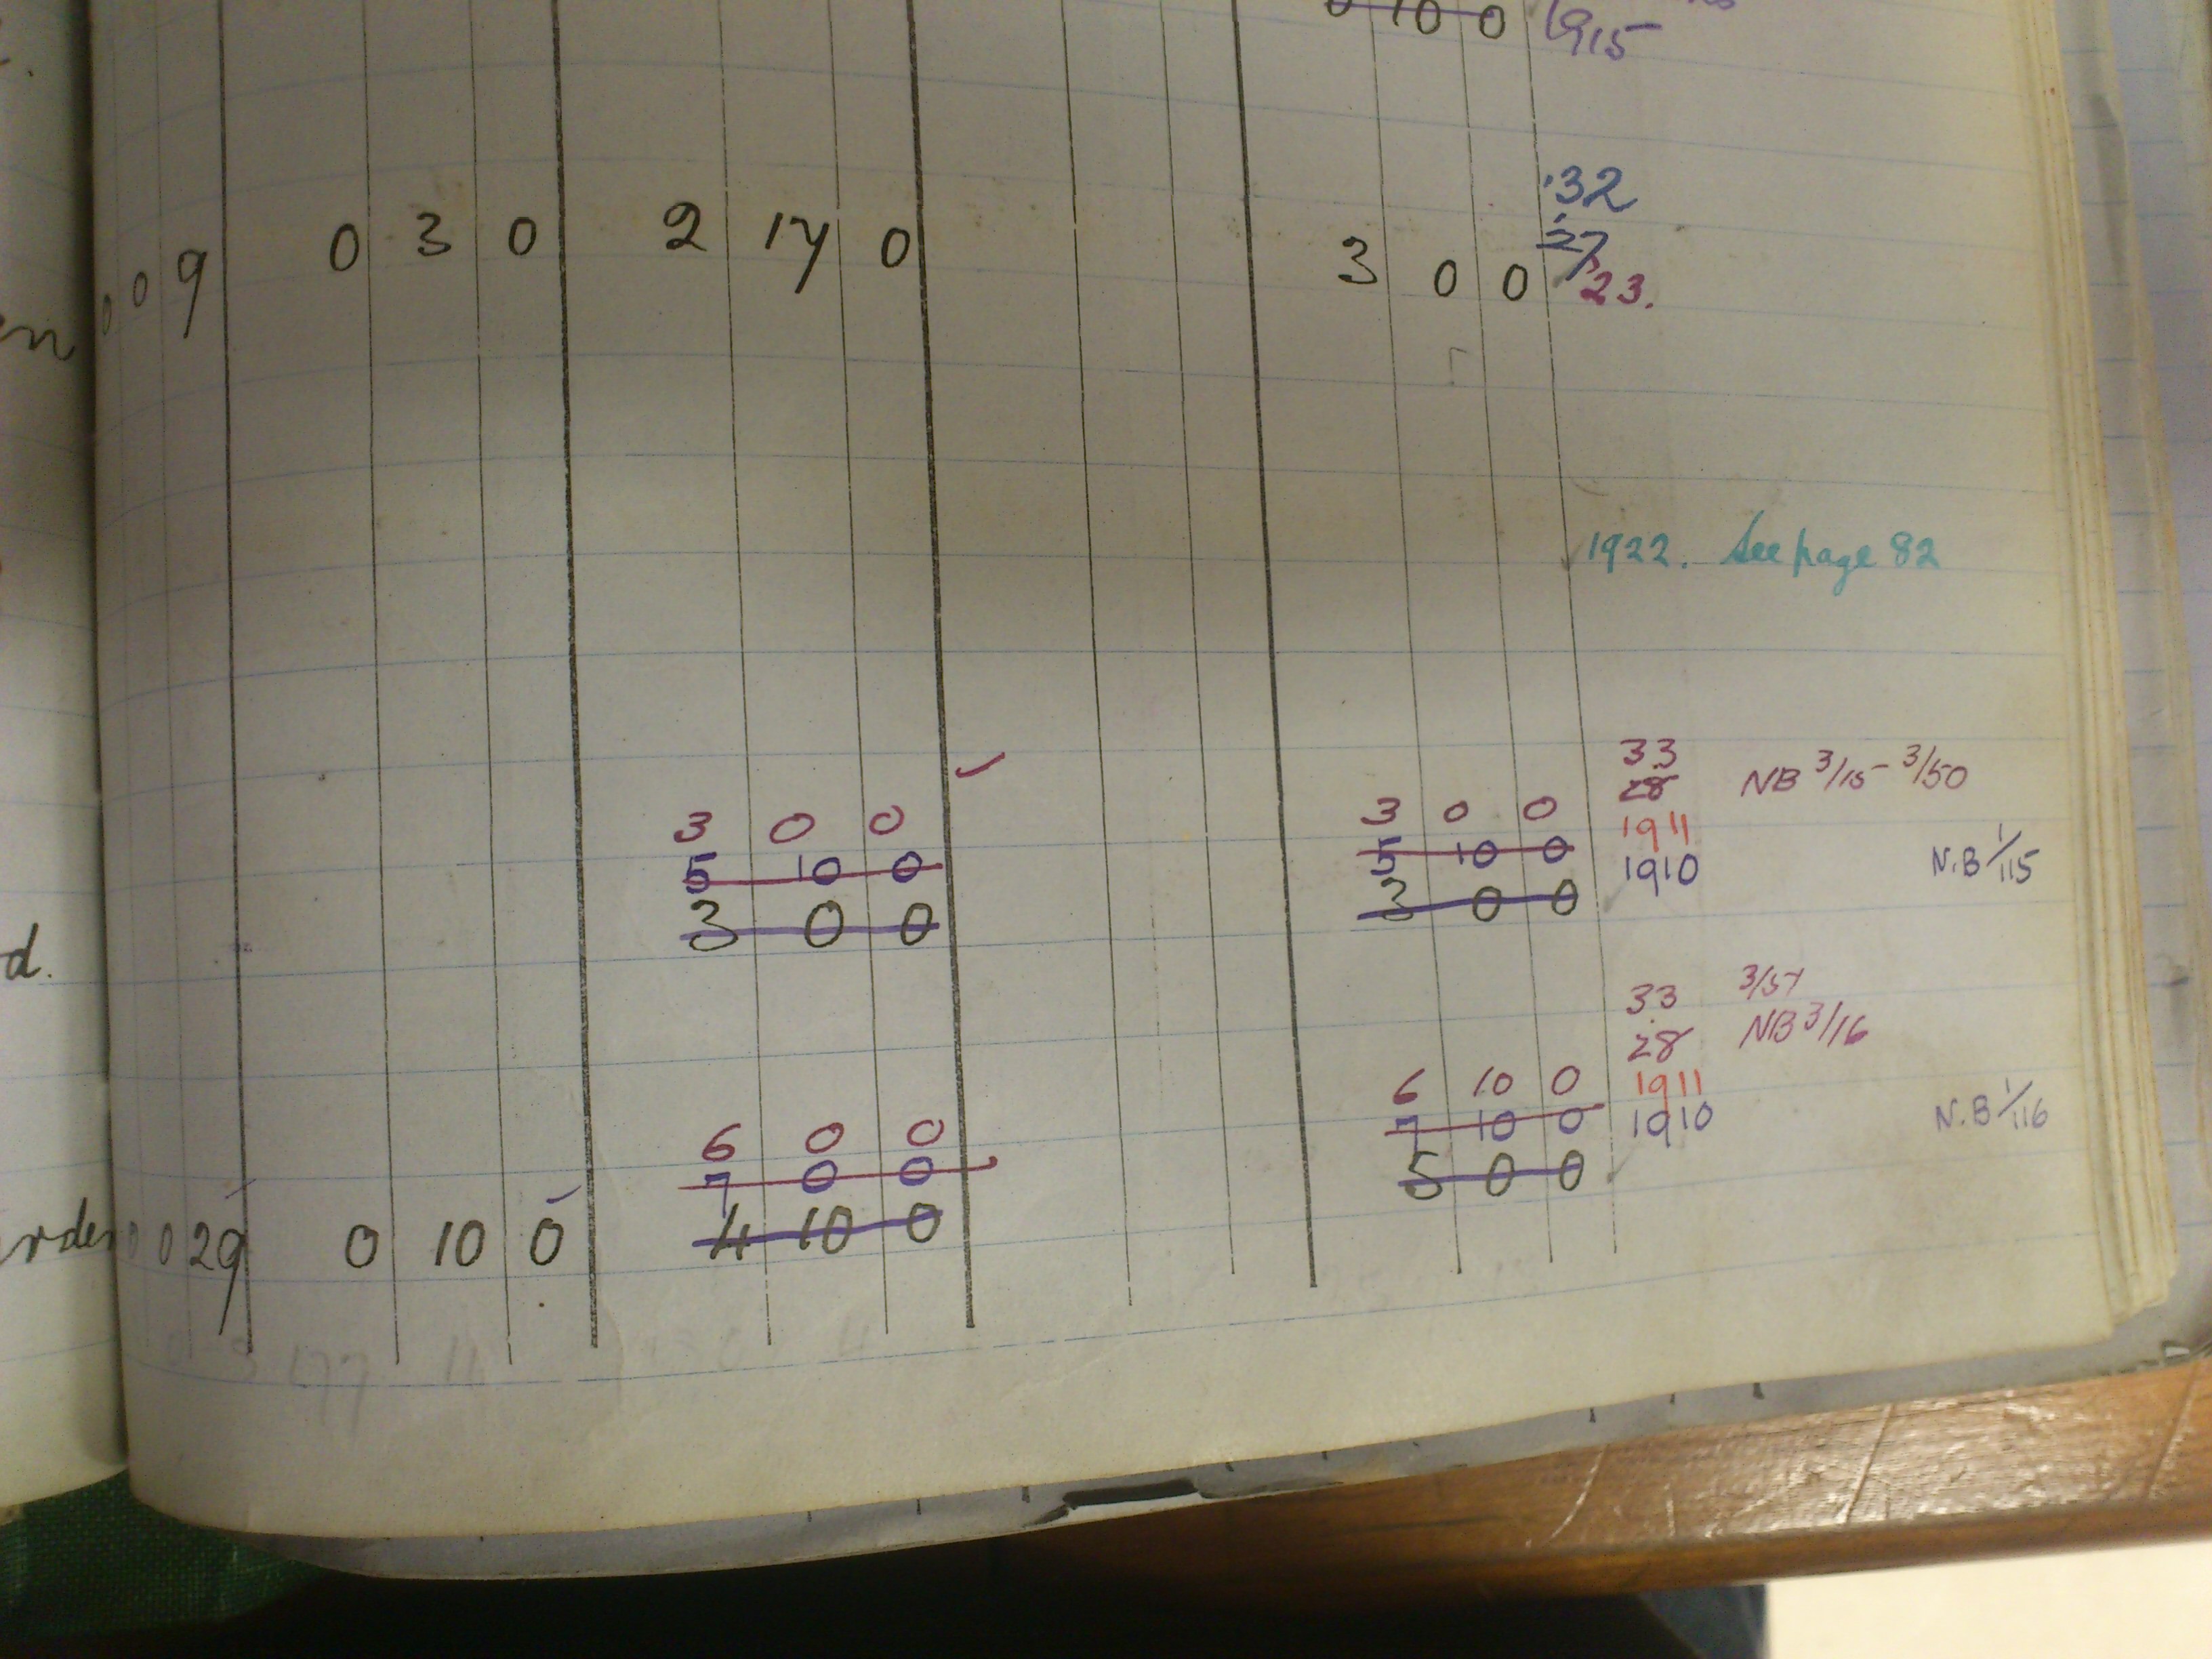 0 10 0 1915
'32
27
0 0 9 0 3 0 2 17 0 3 0 0 23.
1922. See page 82
33
28 NB 3/15 - 3/50
3 0 0 3 0 0 1911
5 10 0 5 10 0 1910 N.B 1/115
3 0 0 3 0 0
d.
33 3/51
28 NB 3/16
6 0 0 6 10 0 1911
7 0 0 7 10 0 1910 N.B 1/116
4 10 0 5 0 0
rden 0 0 29 0 10 0